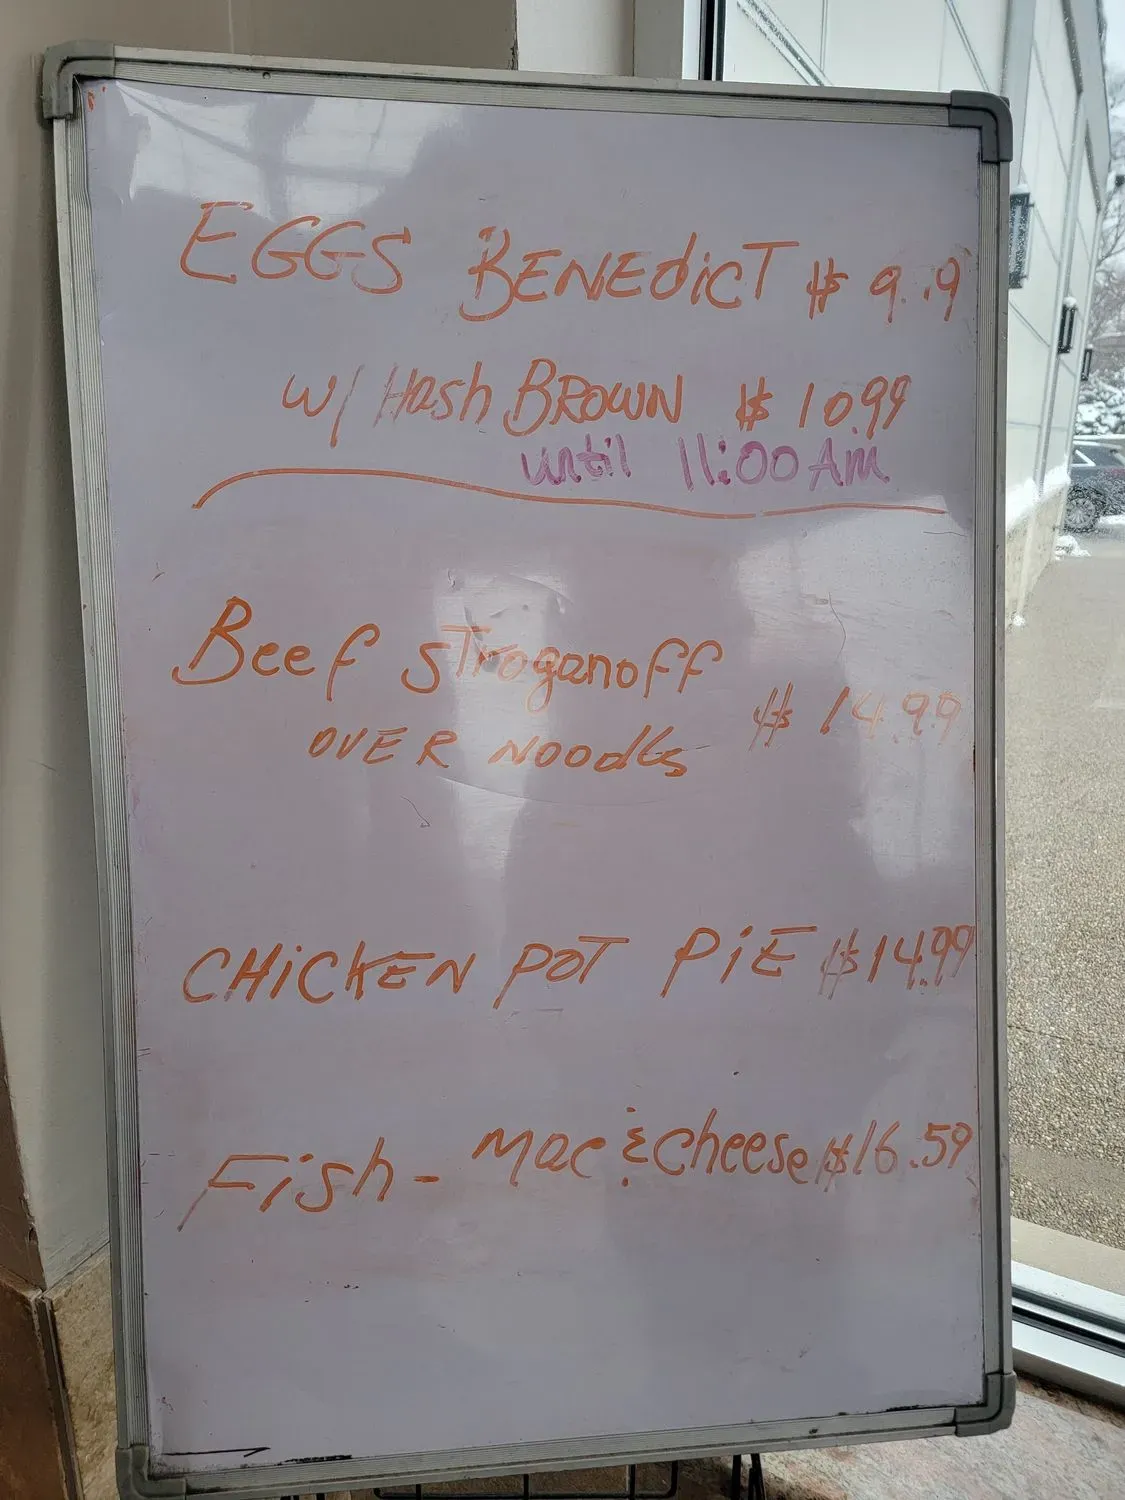 EGGS BENEDICT $ 9.19
w/ Hash BROWN $ 10.99
until 11:00 AM
Beef STroganoff
OVER NOODLS $ 14.99
CHiCKEN POT PiE $14.99
Fish - Mac & Cheese $16.59